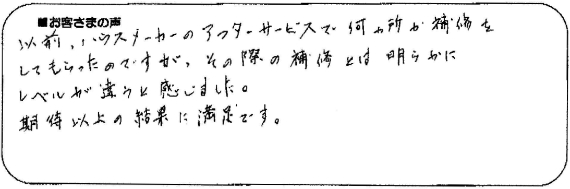 ■お客さまの声
以前、ハウスメーカーのアフターサービスで何ヵ所か補修を
してもらったのですが、その際の補修とは明らかに
レベルが違うと感じました。
期待以上の結果に満足です。